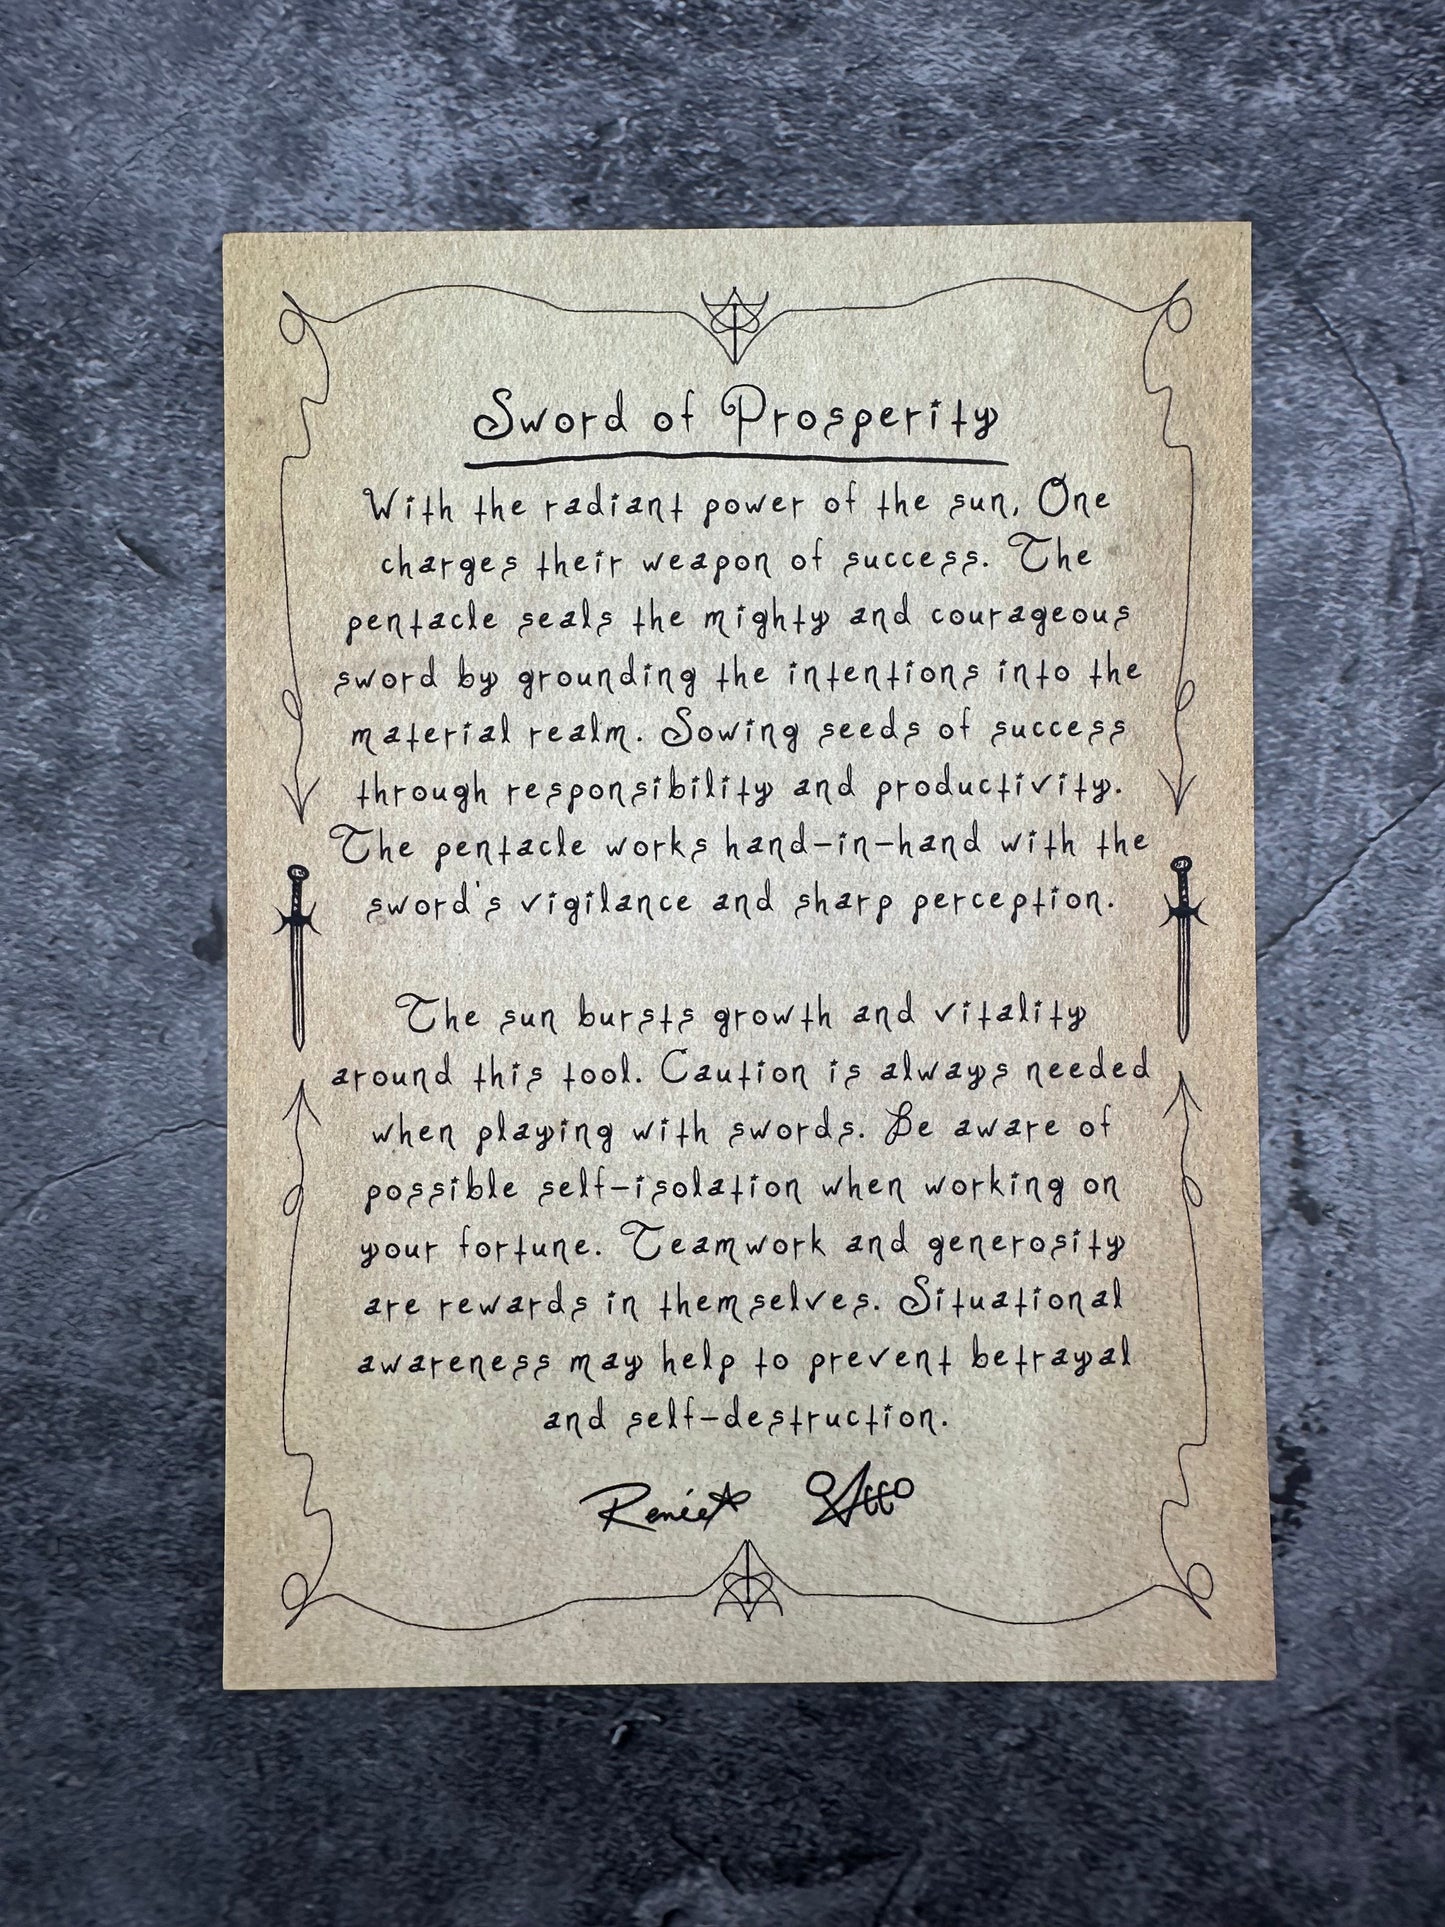 Sword of Prosperity
With the radiant power of the sun, One
charges their weapon of success. The
pentacle seals the mighty and courageous
sword by grounding the intentions into the
material realm. Sowing seeds of success
through responsibility and productivity.
The pentacle works hand-in-hand with the
sword's vigilance and sharp perception.
The sun bursts growth and vitality
around this tool. Caution is always needed
when playing with swords. Be aware of
possible self-isolation when working on
your fortune. Teamwork and generosity
are rewards in themselves. Situational
awareness may help to prevent betrayal
and self-destruction.
Renée